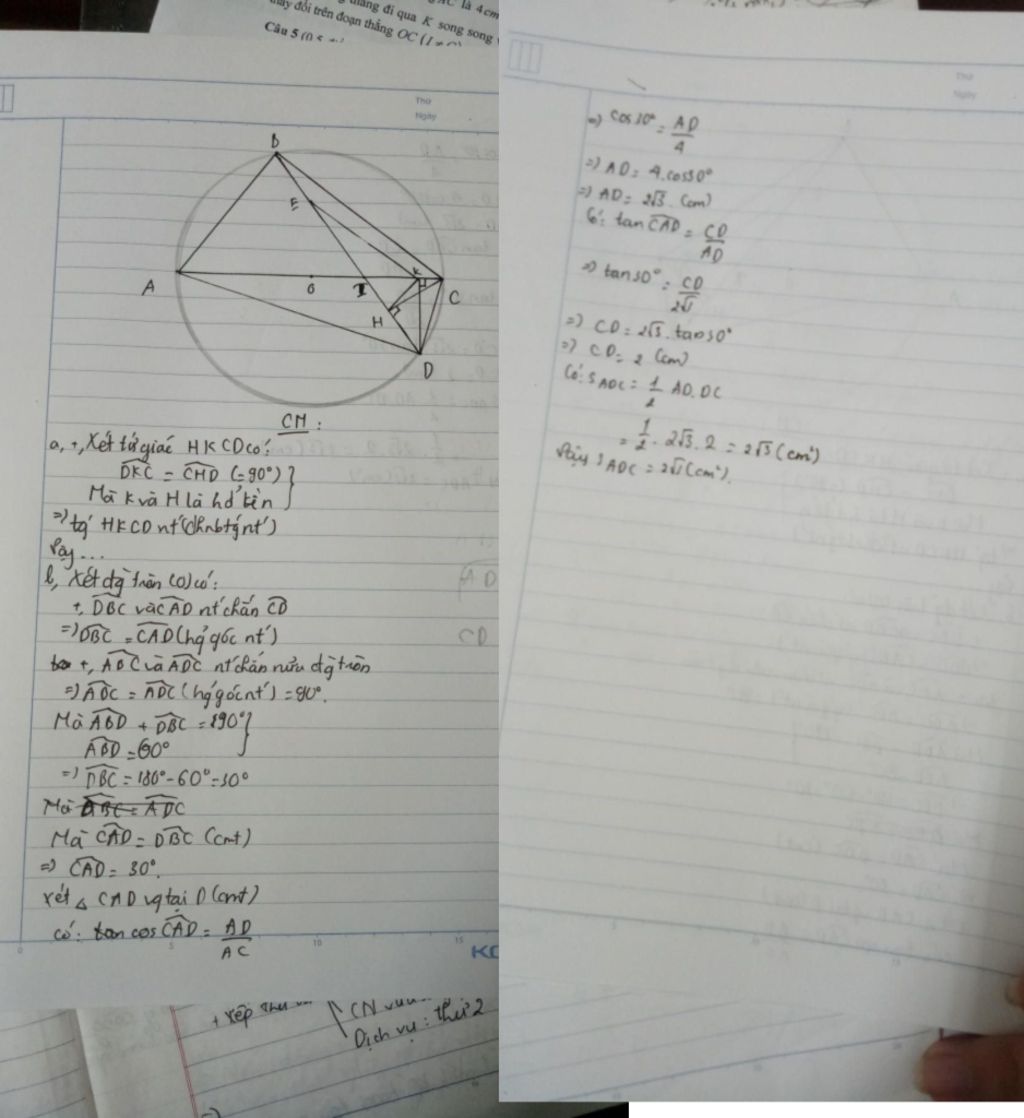 AC là 4cm
thẳng đi qua K song song
thay đổi trên đoạn thẳng OC (I ≠ C)
Câu 5 (0,5
Thứ
Ngày
B
E
A
O
I
K
C
H
D
CM:
a, +, Xét tứ giác HKCD có:
DKC = CHD (=90°)
Mà K và H là hđ kền
=) tg HKCD nt (dhnbtgnt)
Vậy...
b, Xét đg tròn (O) có:
+, DBC và CAD nt chắn CD
=) DBC = CAD (hq góc nt)
+, ABC và ADC nt chắn nửa đg tròn
=) ABC = ADC (hq góc nt) = 90°.
Mà ABD + DBC = 190°
ABD = 60°
=) DBC = 180° - 60° = 30°
Mà ABC = ADC
Mà CAD = DBC (cmt)
=) CAD = 30°.
xét △ CAD vg tại D (cmt)
có: tan cos CAD = AD
AC
0 5 10 15 KO
+ xếp
CN
Dịch vụ: thứ 2
Thứ
Ngày
=) cos 30° = AD
4
=) AD = 4.cos30°
=) AD = 2√3. (cm)
Có: tan CAD = CD
AD
=) tan 30° = CD
2√3
=) CD = 2√3. tan 30°
=) CD = 2 (cm)
Có: S ADC = 1/2 AD.DC
= 1/2 . 2√3. 2 = 2√3 (cm²)
Vậy S ADC = 2√3 (cm²).